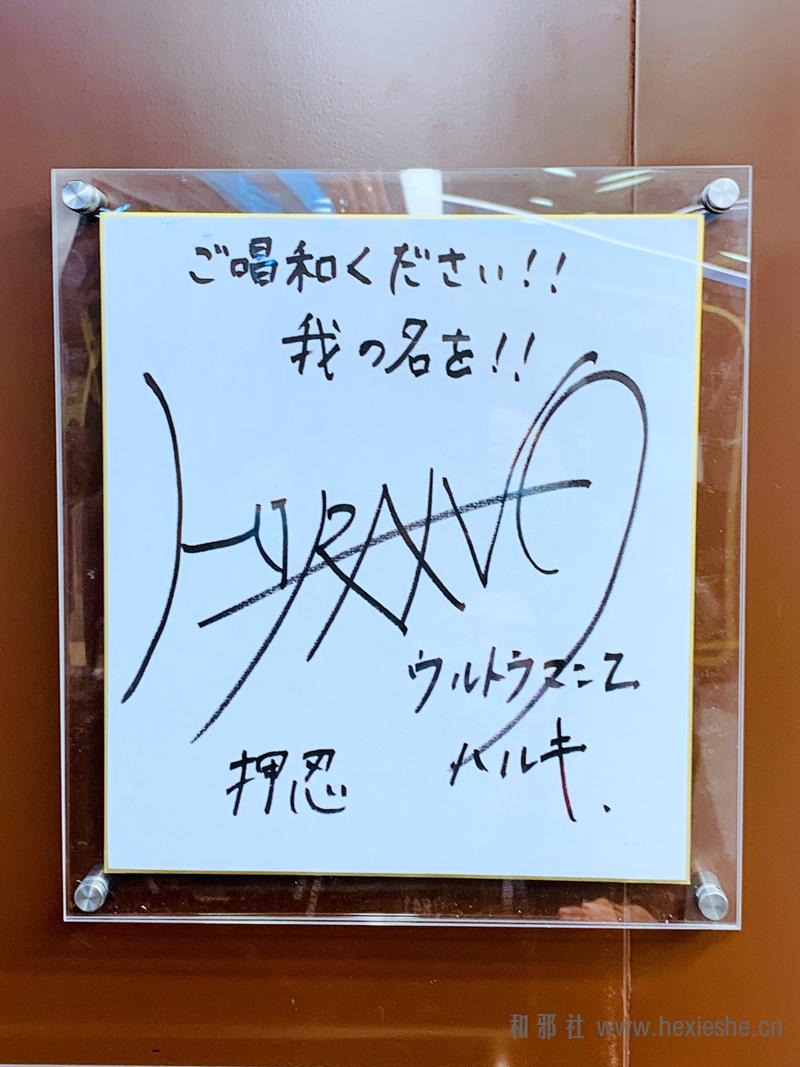 ご唱和ください!!
我の名を!!
HIRANO
ウルトラマンZ
押忍 ハルキ.
和邪社 www.hexieshe.cn